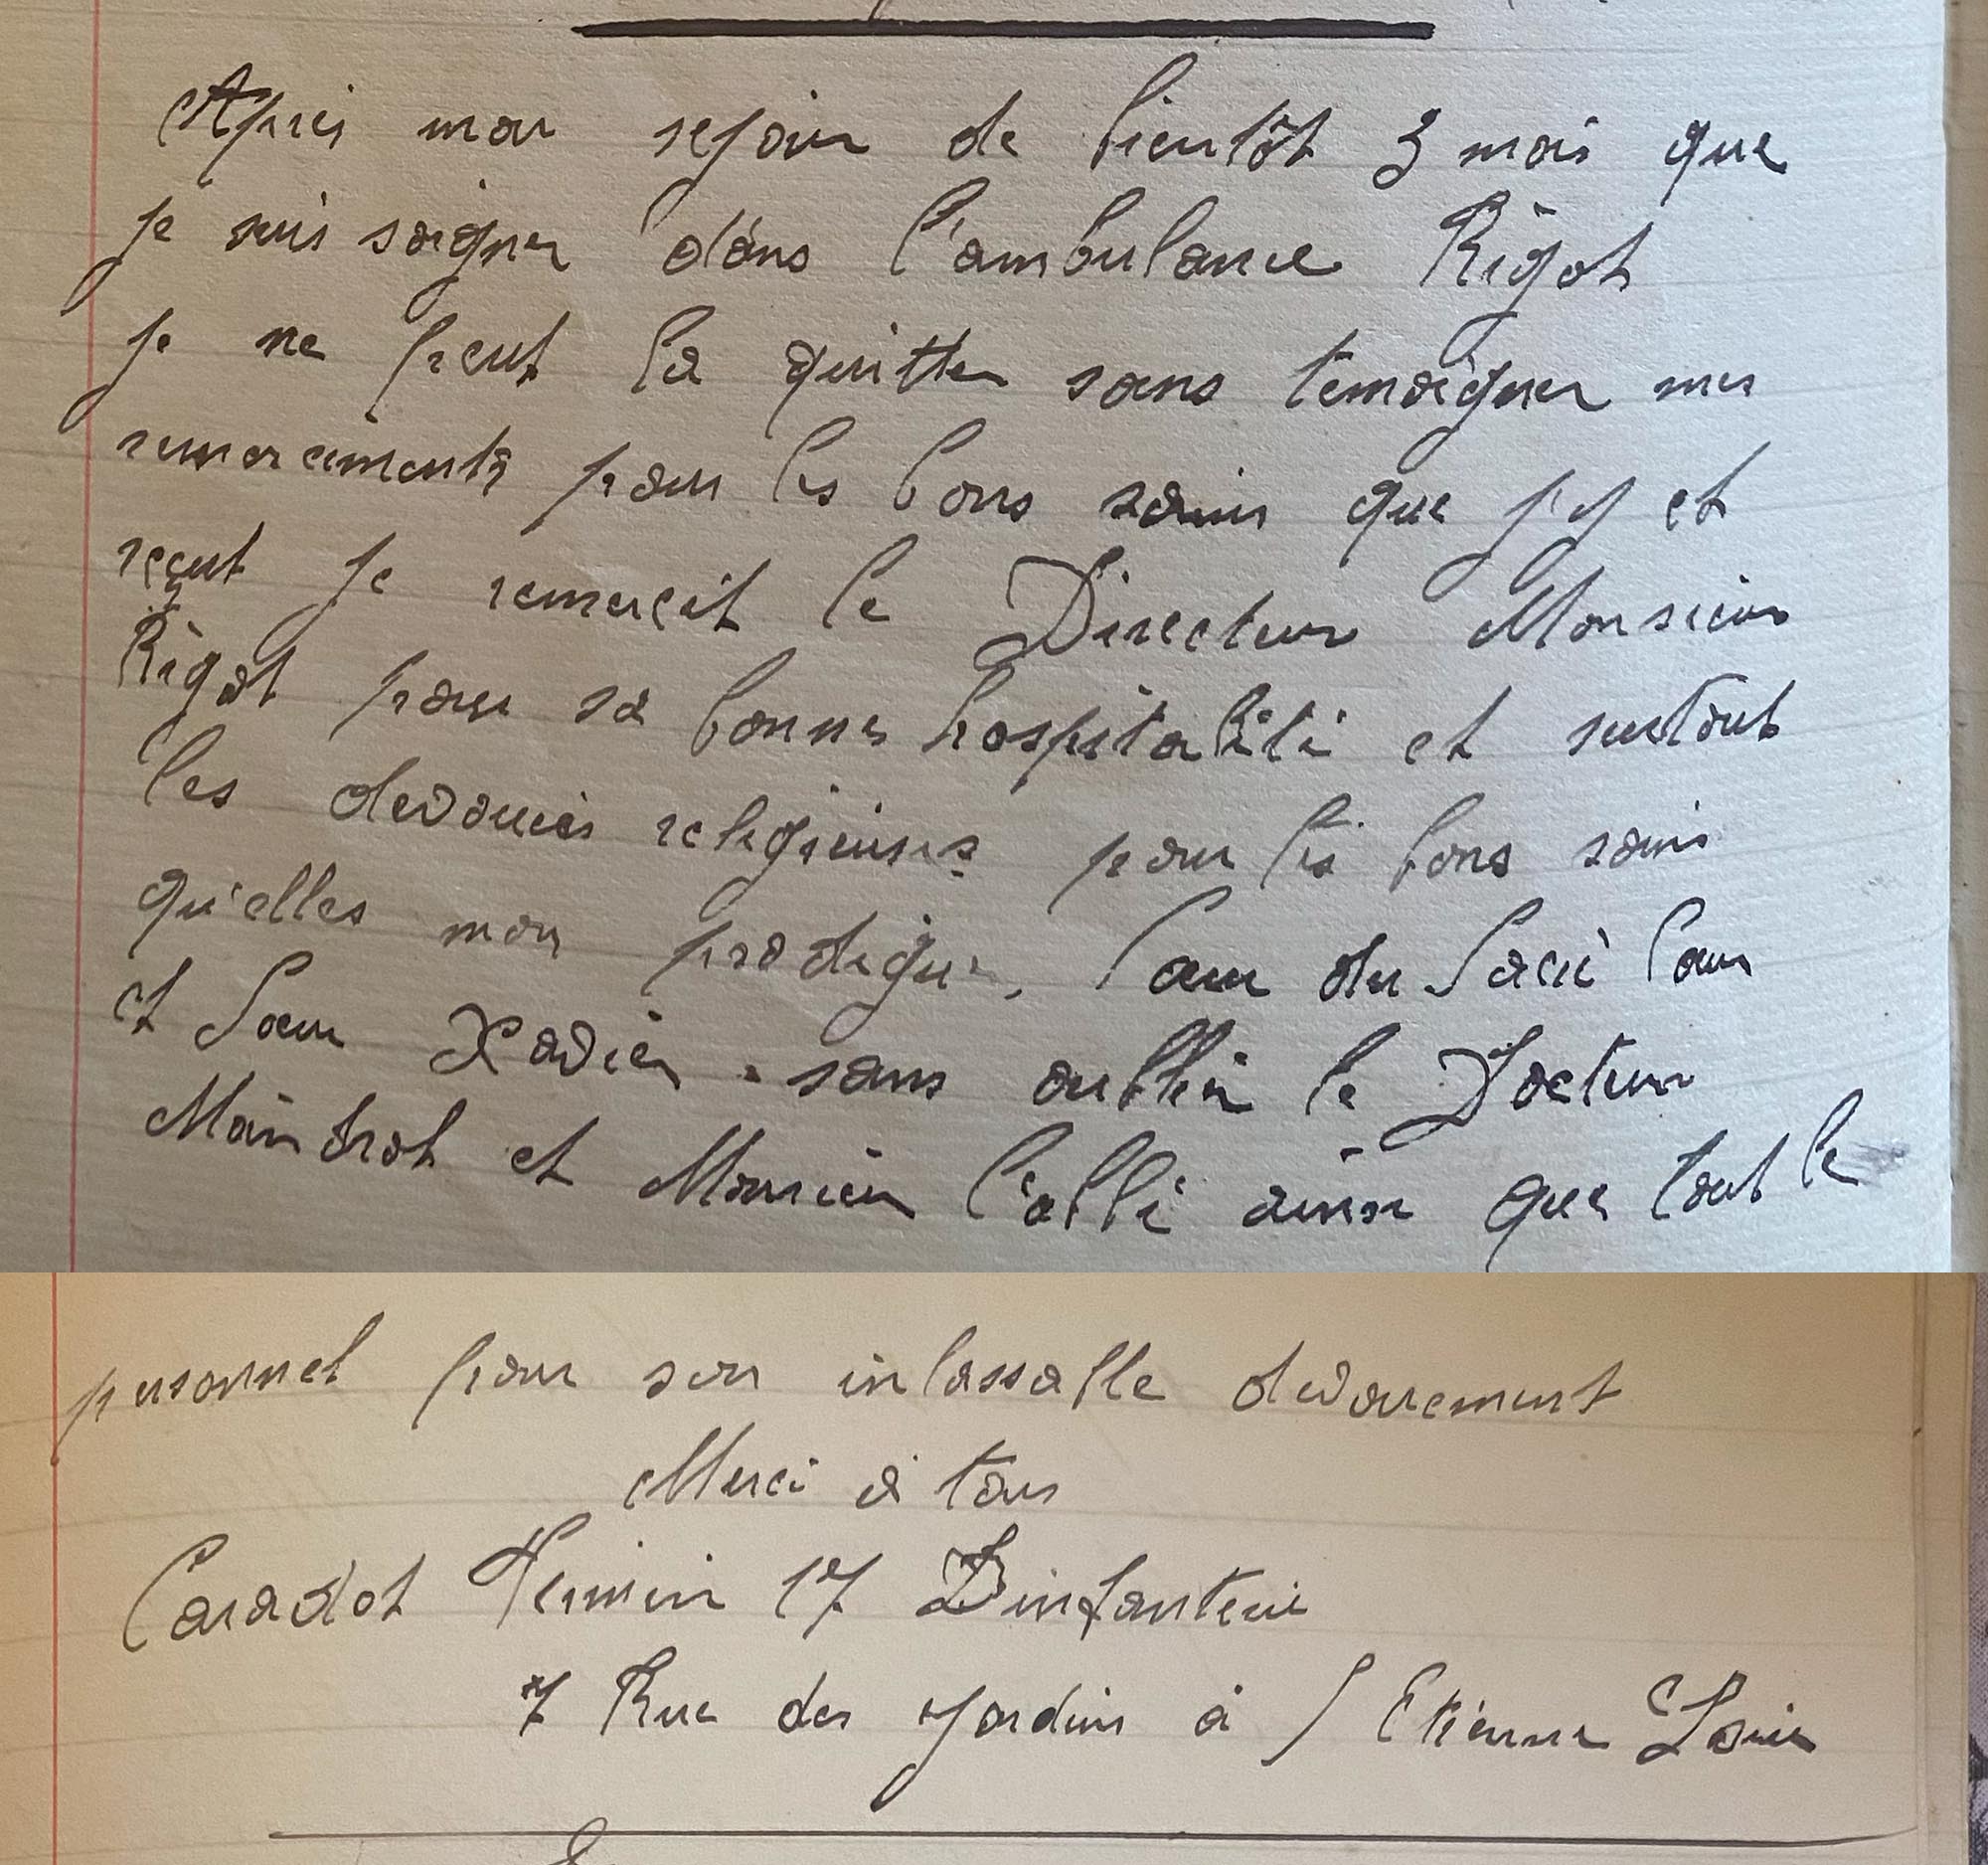 Après mon sejour de bientôt 3 mois que
je suis soigner dans l'ambulance Rigot
je ne peut la quitter sans temoigner mes
remerciments pour les bons soins que j'y et
reçut je remercit le Directeur Monsieur
Rigot pour sa bonnes hospitalité et surtout
les devouées religieuses pour les bons soins
qu'elles mon prodigu. Sœur du Sacré Cœur
et Sœur Xavier. sans oublier le Docteur
Maindrot et Monsieur l'abbé ainsi que tout le
personnel pour son inlassable devouement
Merci à tous
Caradot Firmin 17 D'infanterie
7 Rue des Jardins à S Etienne Loire